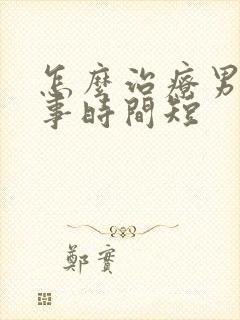 怎麼治療男
事時間短
鄭實